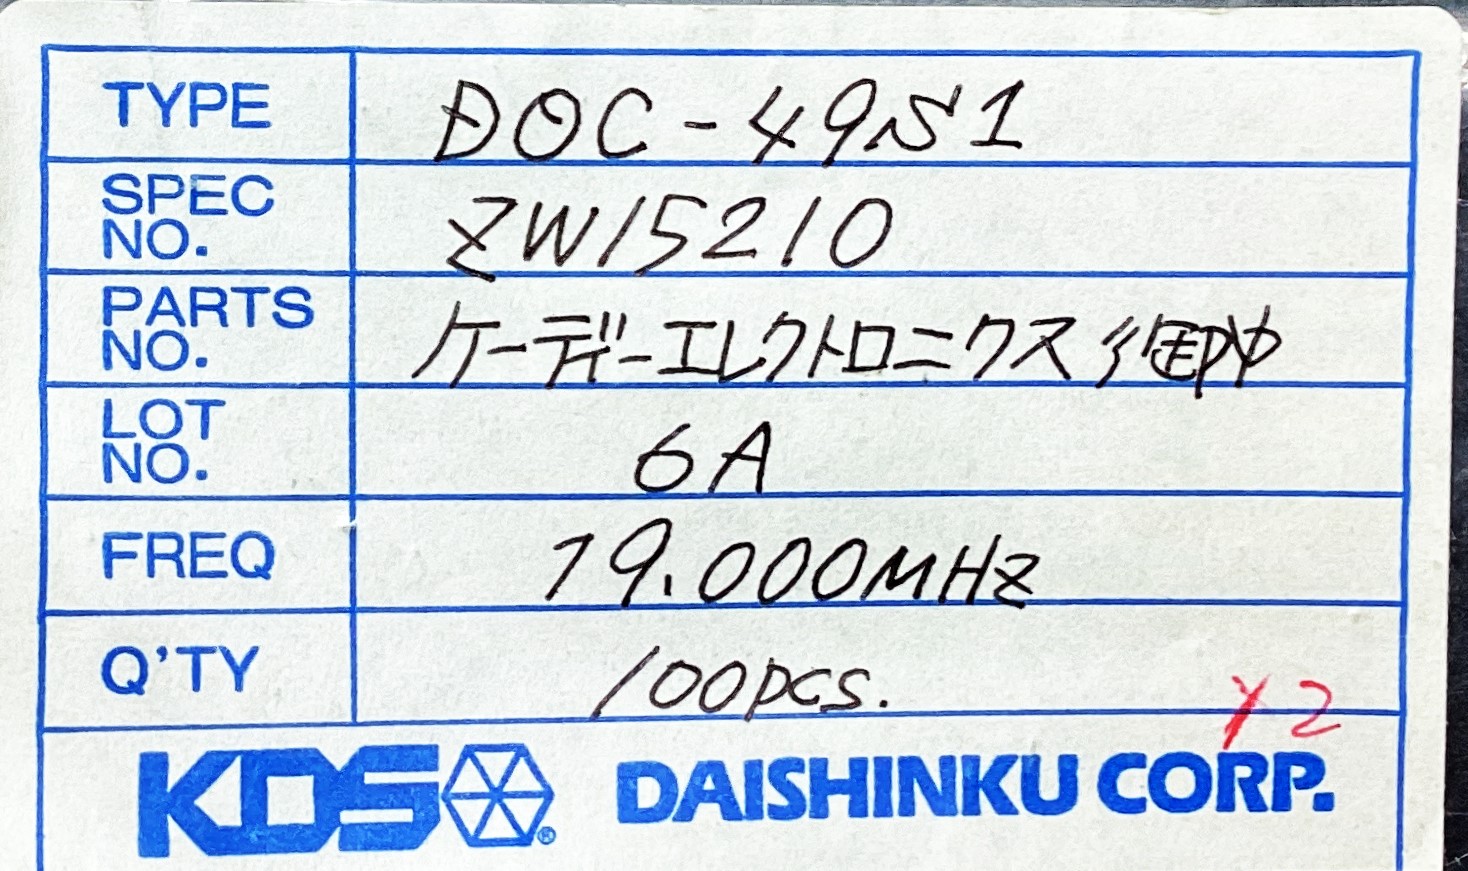 TYPE DOC-49S1
SPEC NO. ZW15210
PARTS NO. ケーディーエレクトロニクス 御中
LOT NO. 6A
FREQ 19.000MHz
Q'TY 100pcs. ×2
KDS® DAISHINKU CORP.